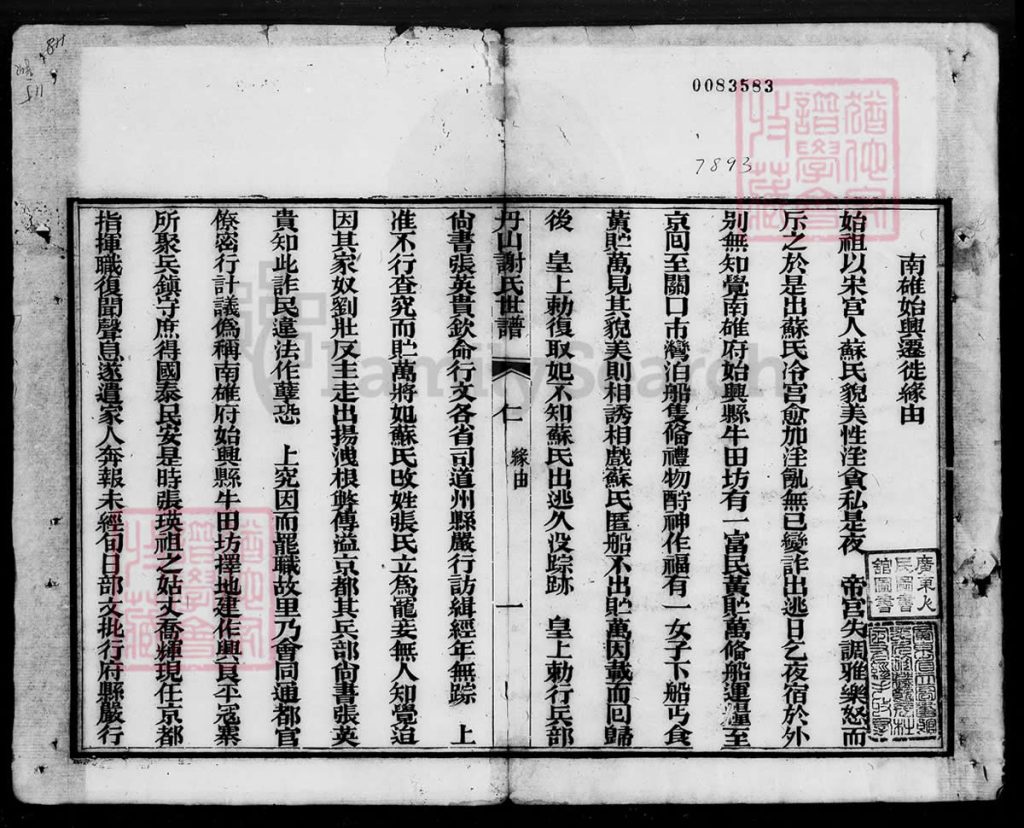 0083583
7893
南雄始興遷徙緣由
始祖以宋宫人蘇氏貌美性淫貪私是夜　帝宫失調雅樂怒而
斥之於是出蘇氏冷宫愈加淫亂無已變詐出逃日乞夜宿於外
别無知覺南雄府始興縣牛田坊有一富民黃貯萬脩船運糧至
京囘至關口市灣泊船隻俻禮物酧神作福有一女子下船丐食
黃貯萬見其貌美則相誘相戲蘇氏匿船不出貯萬因載而囘歸
後　皇上勅復取妃不知蘇氏出逃久没踪跡　皇上勅行兵部
丹山謝氏世譜　仁　緣由　一
尚書張英貴欽命行文各省司道州縣嚴行訪緝經年無踪　上
准不行查究而貯萬將妃蘇氏改姓張氏立為寵妾無人知覺迨
因其家奴劉壯反主走出揚洩根獘傳溢京都其兵部尚書張英
貴知此詐民違法作孽恐　上究因而罷職故里乃會同通都官
僚密行計議僞稱南雄府始興縣牛田坊擇地建作興良平冦寨
所聚兵鎮守庶得國泰民安是時張瑛祖之姑丈喬輝現任京都
指揮職復聞聲息遂遣家人奔報未經旬日部文批行府縣嚴行
廣東人民圖書館圖書
FamilySearch